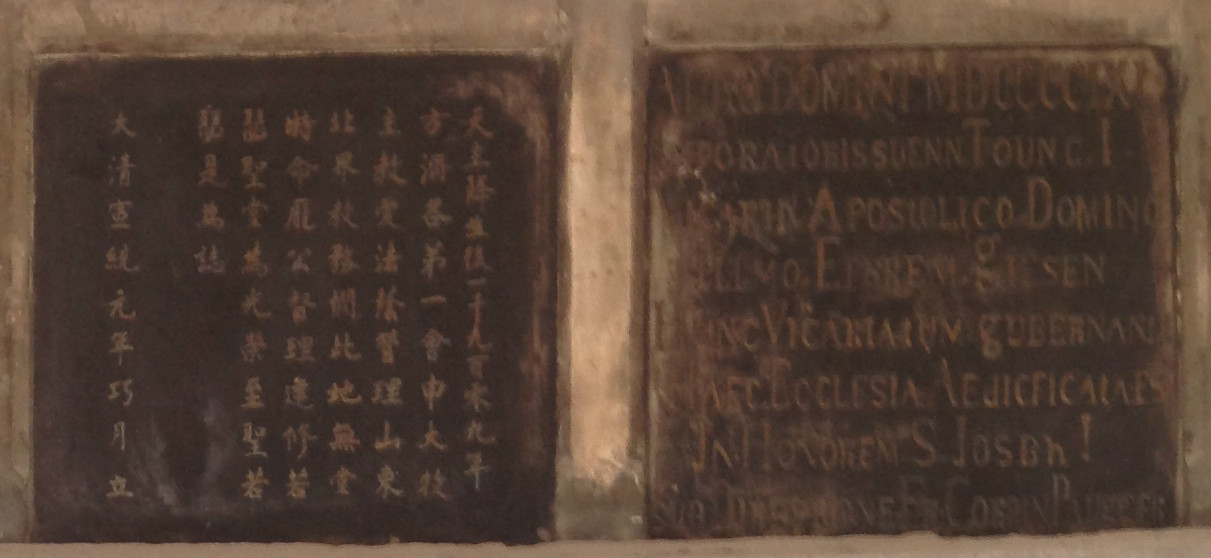 天主降生後一千九百零九年
方濟各第一會申大牧
主教愛法蔭督理山東
北界教務憫此地無堂
時命龎公督理建修若
瑟聖堂為光榮至聖若
瑟是為誌
大清宣統元年巧月立
DOMINI MDCCCCIX
TOUNG. I
APOSTOLICO DOMINO
EPHREM. gIESEN
VICARIATUM gUBERNAN
ECCLESIA AEDICFICATAES
IN HONOREM S JOSBH !